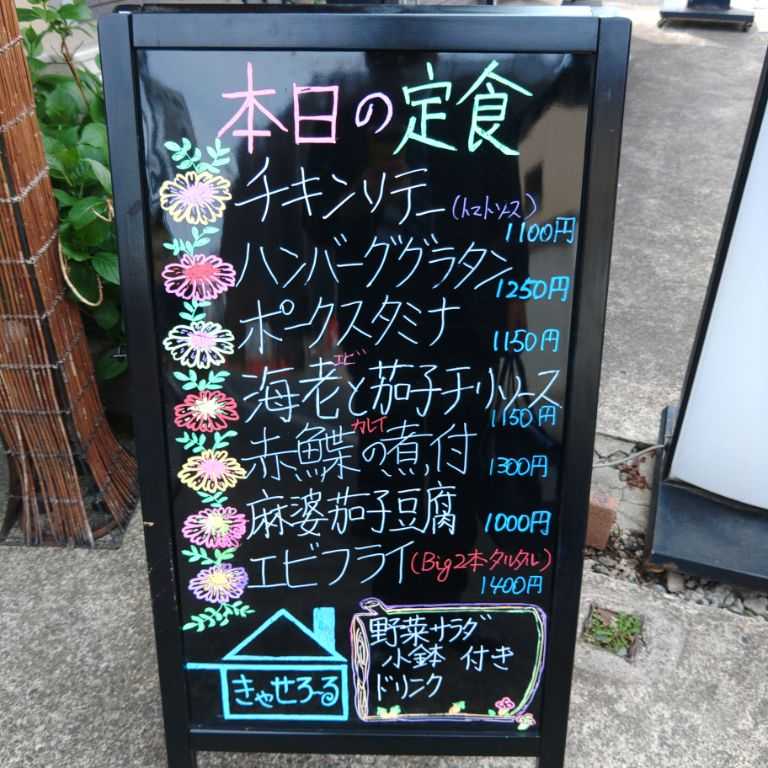 本日の定食
チキンソテー(トマトソース)
1100円
ハンバーググラタン
1250円
ポークスタミナ
1150円
エビ
海老と茄子チリソース
1150円
カレイ
赤鰈の煮付
1300円
麻婆茄子豆腐 1000円
エビフライ(Big2本タルタル)
1400円
きゃせろ~る
野菜サラダ
小鉢 付き
ドリンク